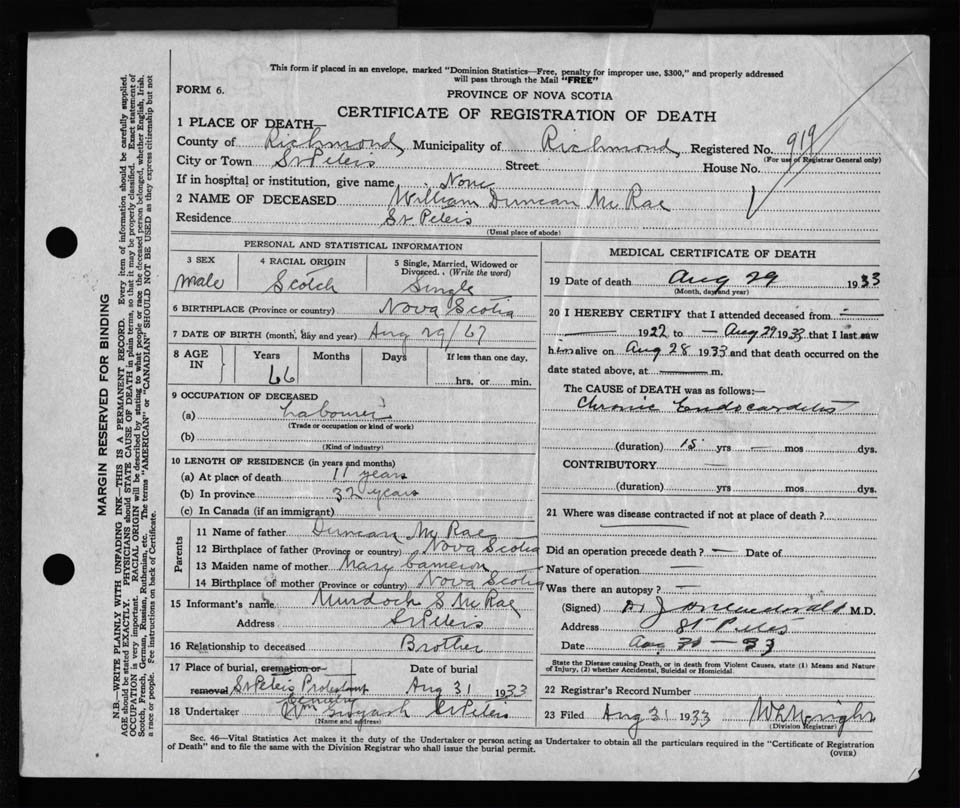 This form if placed in an envelope, marked "Dominion Statistics—Free, penalty for improper use, $300," and properly addressed
will pass through the Mail "FREE"
FORM 6.
PROVINCE OF NOVA SCOTIA
CERTIFICATE OF REGISTRATION OF DEATH
1 PLACE OF DEATH—
County of Richmond, Municipality of Richmond, Registered No. 919
(For use of Registrar General only)
City or Town St Peters Street House No.
If in hospital or institution, give name None
2 NAME OF DECEASED William Duncan McRae
Residence St. Peters
(Usual place of abode)
PERSONAL AND STATISTICAL INFORMATION
3 SEX
male
4 RACIAL ORIGIN
Scotch
5 Single, Married, Widowed or
Divorced. (Write the word)
Single
6 BIRTHPLACE (Province or country) Nova Scotia
7 DATE OF BIRTH (month, day and year) Aug 29/67
8 AGE IN
Years Months Days If less than one day,
66
hrs. or min.
9 OCCUPATION OF DECEASED
(a) Labourer
(Trade or occupation or kind of work)
(b)
(Kind of industry)
10 LENGTH OF RESIDENCE (in years and months)
(a) At place of death 11 years
(b) In province 32 years
(c) In Canada (if an immigrant)
Parents
11 Name of father Duncan McRae
12 Birthplace of father (Province or country) Nova Scotia
13 Maiden name of mother Mary Cameron
14 Birthplace of mother (Province or country) Nova Scotia
15 Informant's name Murdoch S McRae
Address St Peters
16 Relationship to deceased Brother
17 Place of burial, cremation or Date of burial
removal St Peters Protestant Aug 31 1933
Cemetery
18 Undertaker Wm St Peters
(Name and address)
MEDICAL CERTIFICATE OF DEATH
19 Date of death Aug 29 1933
(Month, day and year)
20 I HEREBY CERTIFY that I attended deceased from —
1922 to — Aug 29 1933 that I last saw
him alive on Aug 28 1933 and that death occurred on the
date stated above, at — m.
The CAUSE of DEATH was as follows:—
Chronic Endocarditis
(duration) 15 yrs — mos dys.
CONTRIBUTORY —
(duration) yrs mos dys.
21 Where was disease contracted if not at place of death?
Did an operation precede death? — Date of
Nature of operation —
Was there an autopsy? —
(Signed) M.D.
Address St Peters
Date Aug 30 — 33
State the Disease causing Death, or in death from Violent Causes, state (1) Means and Nature
of Injury, (2) whether Accidental, Suicidal or Homicidal.
22 Registrar's Record Number
23 Filed Aug 31 1933 Wright
(Division Registrar)
Sec. 46—Vital Statistics Act makes it the duty of the Undertaker or person acting as Undertaker to obtain all the particulars required in the "Certificate of Registration
of Death" and to file the same with the Division Registrar who shall issue the burial permit.
(OVER)
MARGIN RESERVED FOR BINDING
N.B.—WRITE PLAINLY WITH UNFADING INK—THIS IS A PERMANENT RECORD. Every item of information should be carefully supplied.
AGE should be stated EXACTLY. PHYSICIANS should STATE CAUSE OF DEATH in plain terms, so that it may be properly classified. Exact statement of
OCCUPATION is very important. RACIAL ORIGIN will be described by stating to what people or race the deceased person belonged, whether English, Irish,
Scotch, French, German, Russian, Ruthenian, etc. The terms "AMERICAN" or "CANADIAN" SHOULD NOT BE USED as they express citizenship but not
a race or people. Fee instructions on back of Certificate.